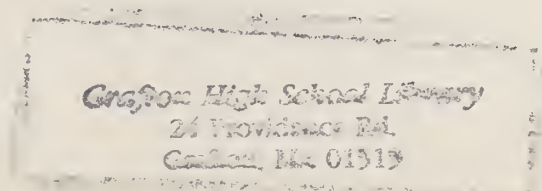 Grafton High School Library
24 Providence Rd.
Grafton, Ma 01519